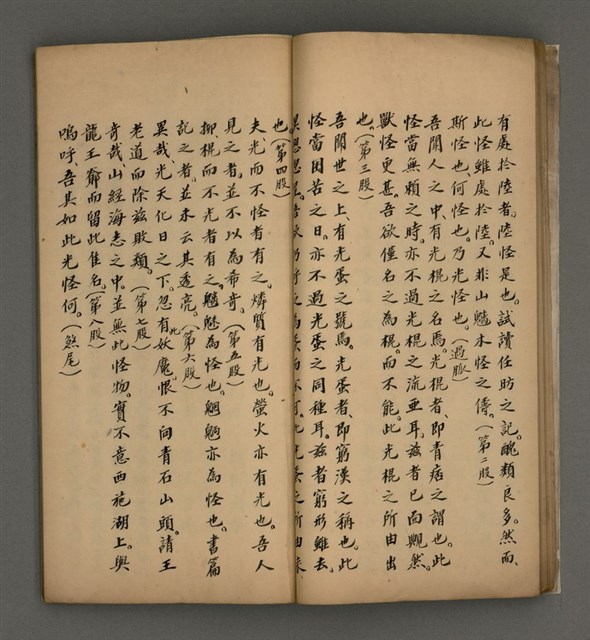 有處於陸者。陸怪是也。試讀任昉之記。醜類良多。然而、
此怪雖處於陸。又非山魈木怪之儔。(第二股)
斯怪也、何怪也。乃光怪也。(過脈)
吾聞人之中、有光棍之名焉。光棍者、即青痞之謂也。此
怪當無賴之時。亦不過光棍之流亜耳。茲者已面覥然。
獸怪更甚。吾欲僅名之為棍。而不能。此光棍之所由出
也。(第三股)
吾聞世之上、有光蛋之號焉。光蛋者、即窮漢之稱也。此
怪當困苦之日。亦不過光蛋之同種耳。茲者窮形雖去。
之為蛋而不可。此光蛋之所由來
也。(第四股)
夫、光而不怪者有之。燐質有光也。螢火亦有光也。吾人
見之者、並不以為希奇。(第五股)
抑、棍而不光者有之。魑魅為怪也。魍魎亦為怪也。書篇
記之者、並未云其透亮。(第六股)
異哉、光天化日之下。忽有此妖魔。恨不向青石山頭。請王
老道而除茲敗類。(第七股)
奇哉、山經海志之中。並無此怪物。實不意西施湖上。與
龍王爺而留此佳名。(第八股)
嗚呼、吾其如此光怪何。(煞尾)